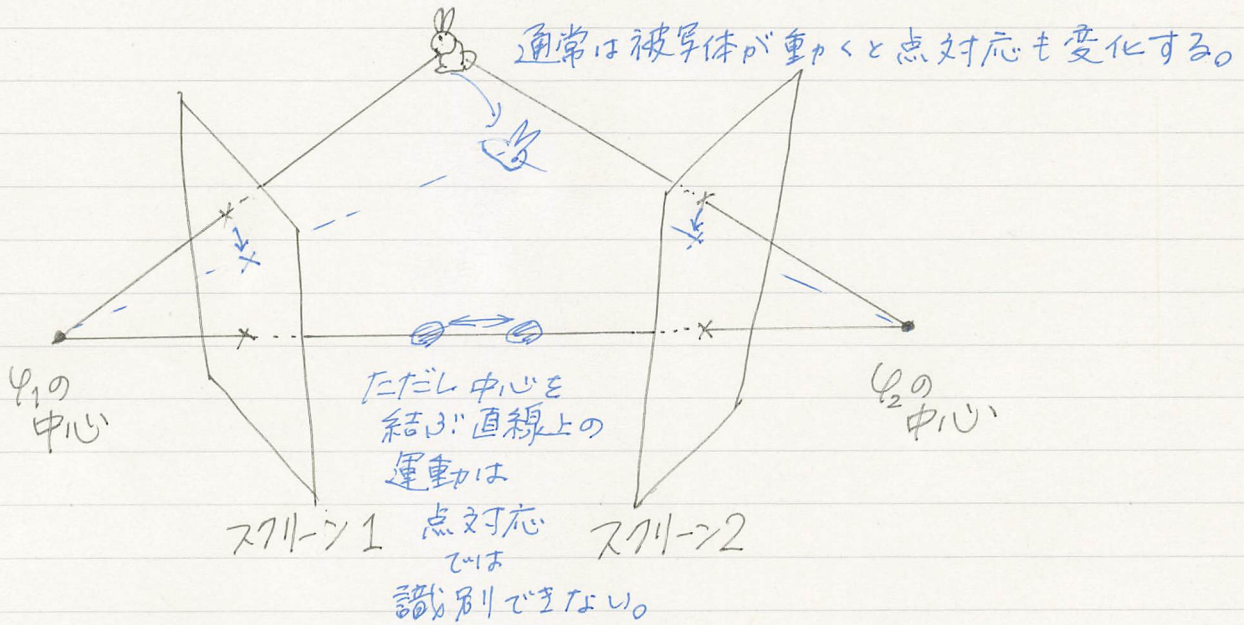 通常は被写体が動くと点対応も変化する。
φ₁の
中心
φ₂の
中心
ただし中心を
結ぶ直線上の
運動は
点対応
では
識別できない。
スクリーン1
スクリーン2